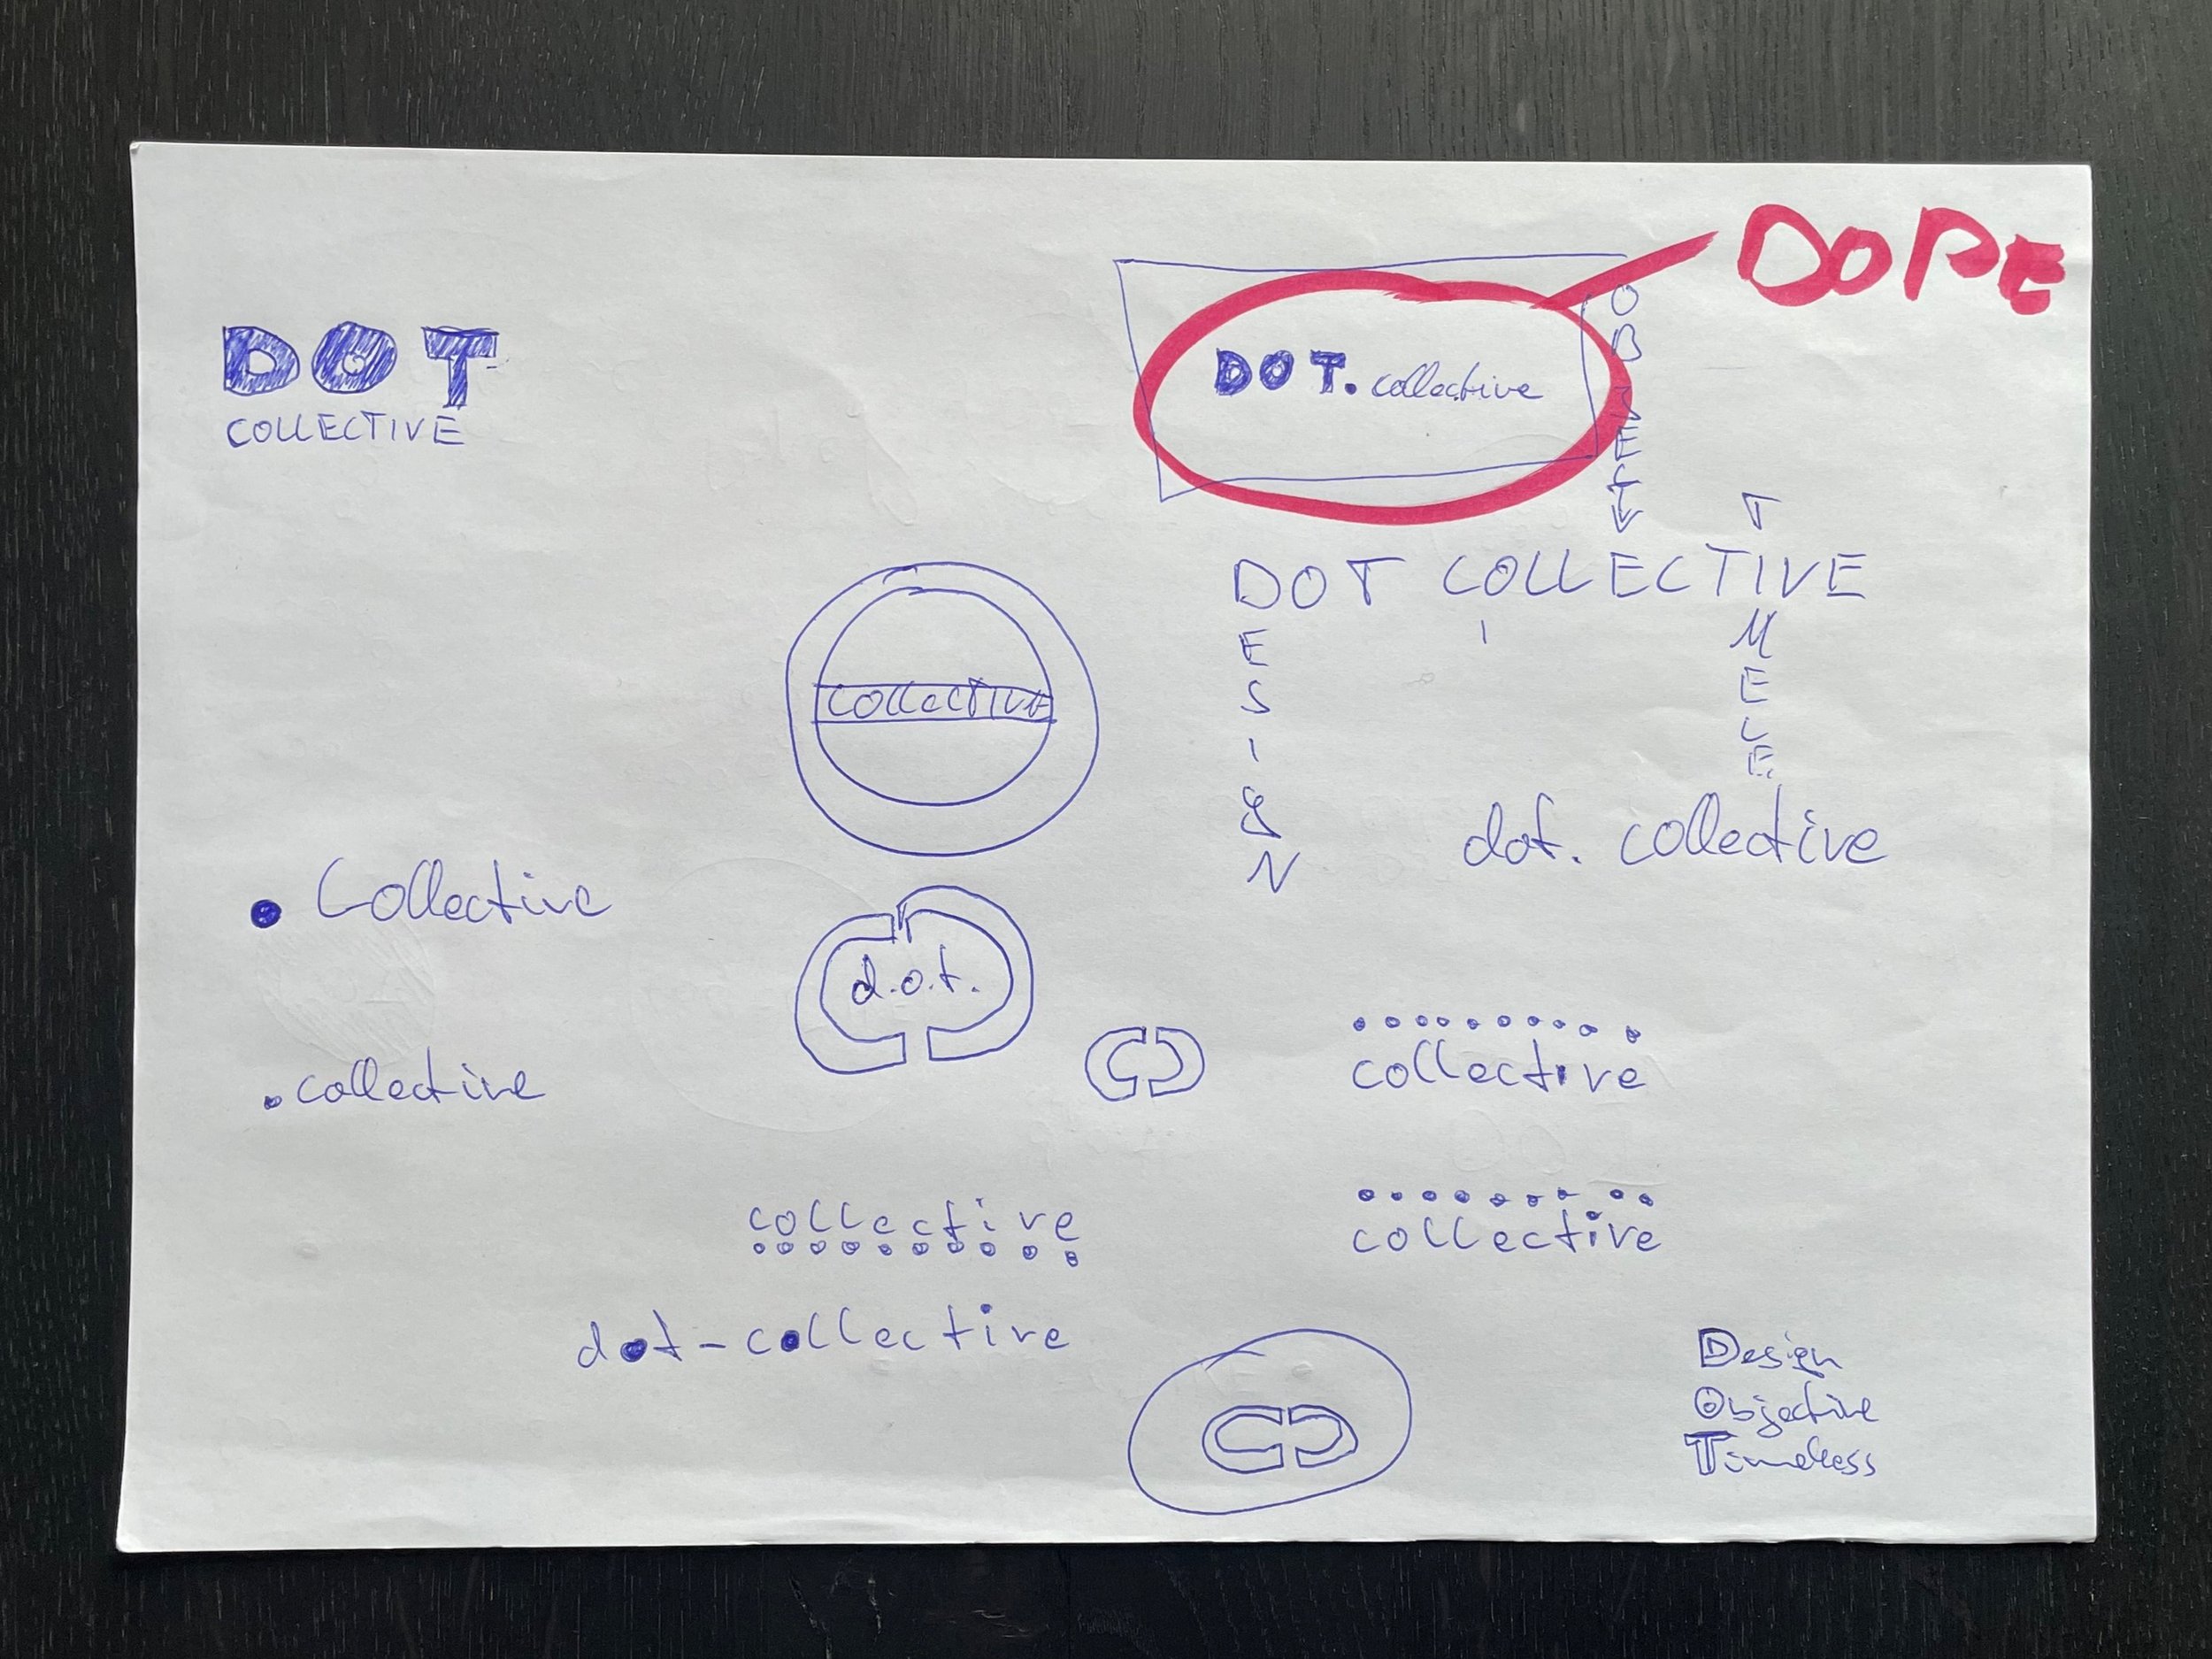 DOPE
DOT
COLLECTIVE
DOT. collective
DOT COLLECTIVE
DESIGN
dot. collective
COLLECTIVE
Collective
d.o.t.
.collective
collective
collective
collective
dot-collective
Design
Objective
Timeless